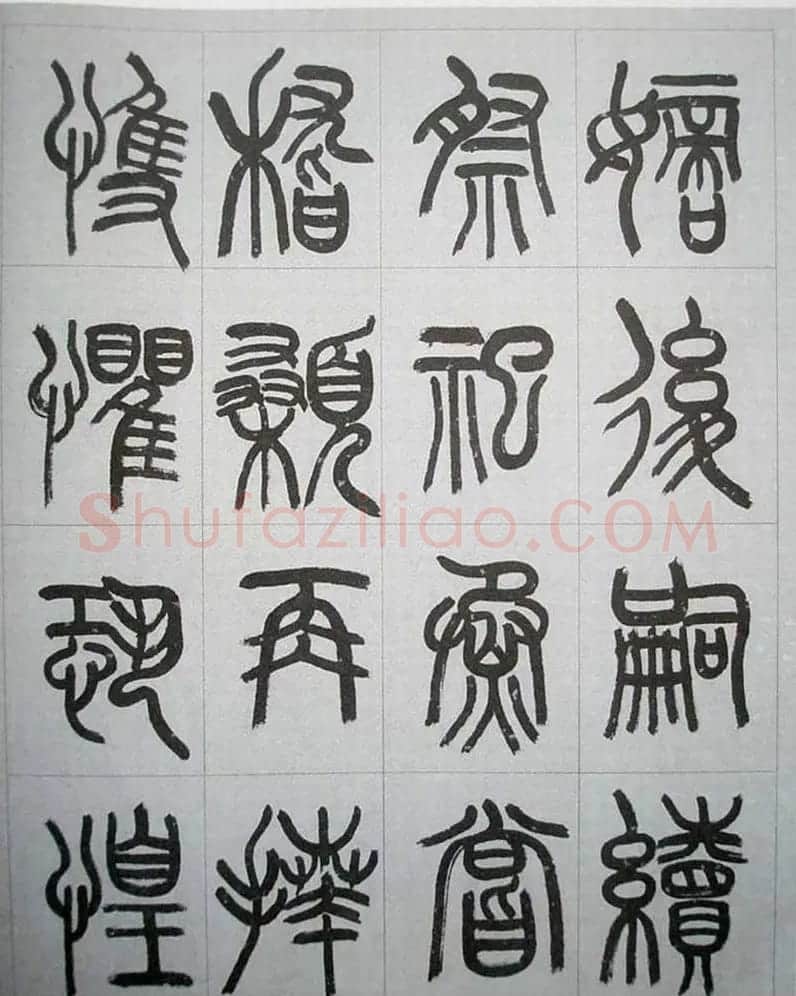 嫡後嗣續
祭祀烝嘗
稽顙再拜
悚懼恐惶
Shufaziliao.COM